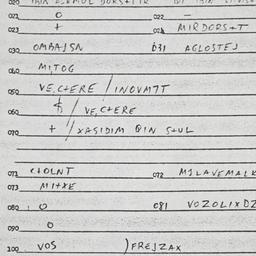 020
021 O 022 —
023 + 024 MIRDORS+T
030 OMBAJSN 031 AGLOSTEJ
040 MITOG
050 VE,C+ERE / INOVMTT
060 $ / VE,C+ERE
070 + // XASIDIM QIN S+UL
071 C+OLNT 072 MJLAVEMALK
073 MITXE
080 O 081 VOZOLIXDZ
090 O
100 VOS )FREJZAX